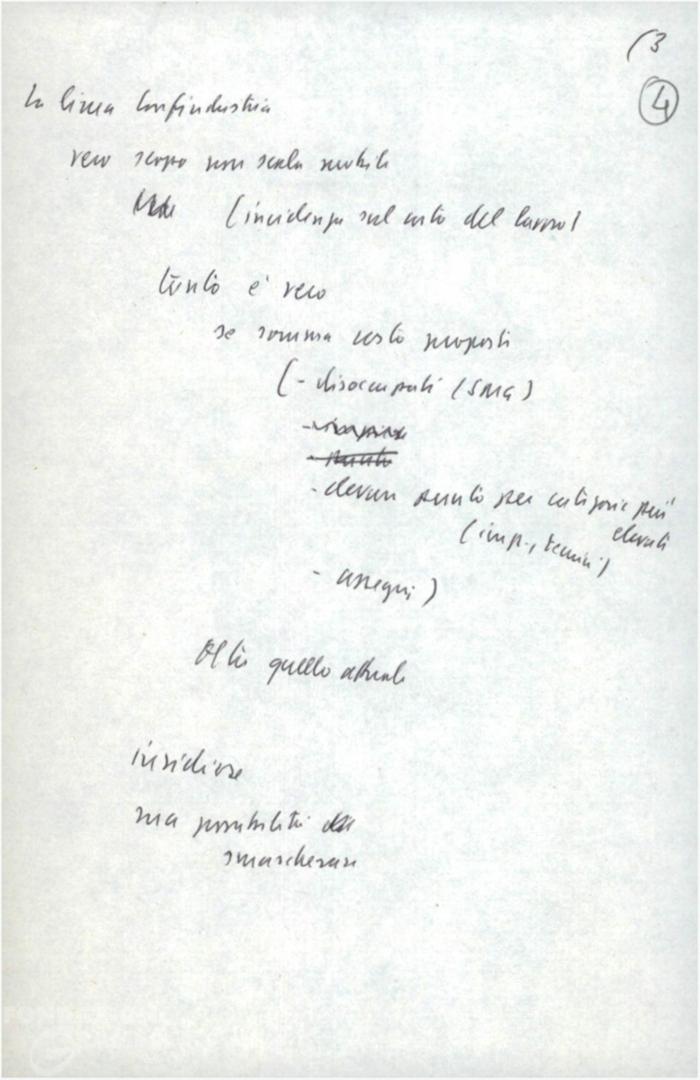 (3
4
La linea Confindustria
vero scopo non scala mobile
(incidenza sul costo del lavoro)
tanto è vero
se somma costo proposti
(- disoccupati (SMG)
- elevare punto per categorie più
elevati
(imp., tecnici)
- assegni)
Oltre quello attuale
insidiose
ma possibilità
smascherare